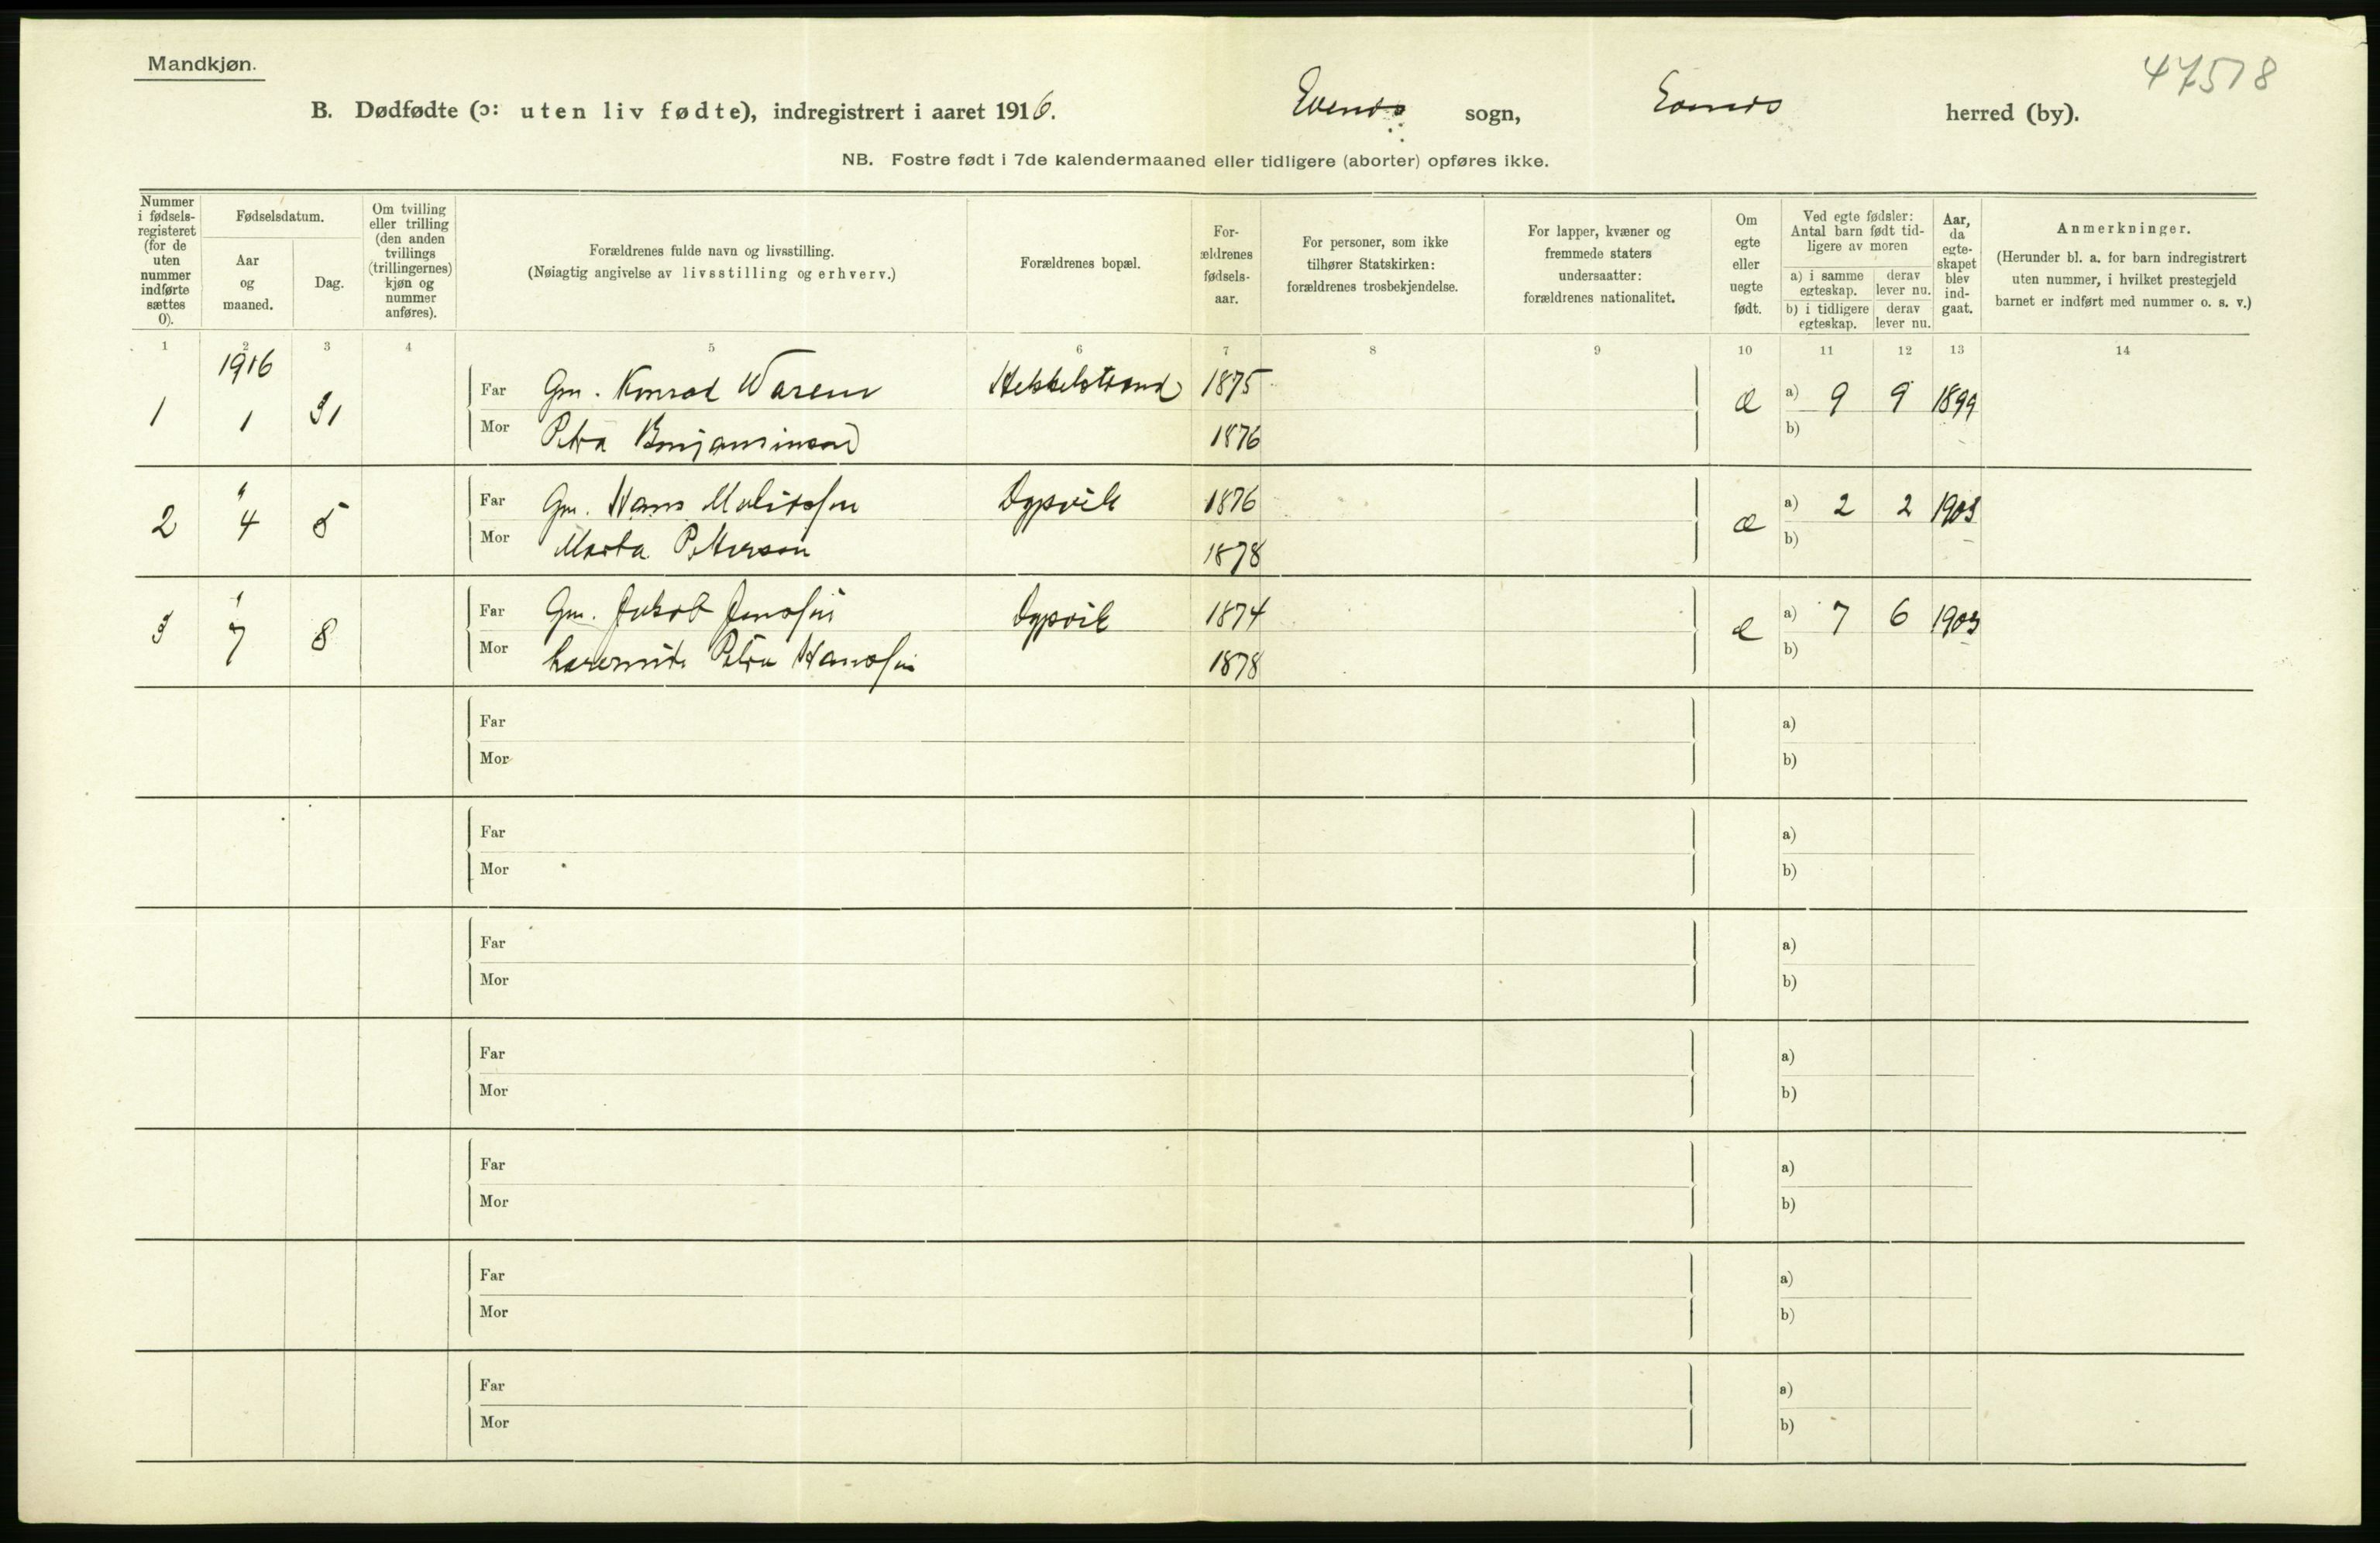 47518
Mandkjøn.
B. Dødfødte (ɔ: uten liv fødte), indregistrert i aaret 1916. Evenes sogn, Evenes herred (by).
NB. Fostre født i 7de kalendermaaned eller tidligere (aborter) opføres ikke.
Nummer i fødsels-registeret (for de uten nummer indførte sættes 0).
Fødselsdatum.
Aar og maaned.
Dag.
Om tvilling eller trilling (den anden tvillings (trillingernes) kjøn og nummer anføres).
Forældrenes fulde navn og livsstilling.
(Nøiagtig angivelse av livsstilling og erhverv.)
Forældrenes bopæl.
For-ældrenes fødsels-aar.
For personer, som ikke tilhører Statskirken: forældrenes trosbekjendelse.
For lapper, kvæner og fremmede staters undersaatter: forældrenes nationalitet.
Om egte eller uegte født.
Ved egte fødsler: Antal barn født tid-ligere av moren
a) i samme egteskap. derav lever nu.
b) i tidligere egteskap. derav lever nu.
Aar, da egte-skapet blev ind-gaat.
Anmerkninger.
(Herunder bl. a. for barn indregistrert uten nummer, i hvilket prestegjeld barnet er indført med nummer o. s. v.)
1 2 3 4 5 6 7 8 9 10 11 12 13 14
1916
1 1 31 Far Gm. Konrad Warem 1875 æ a) 9 9 1899
Mor Petra Benjaminsen 1876 b)
2 " 4 5 Far Gm. Hans Dypvik 1876 æ a) 2 2 1903
Mor Marta Pettersen 1878 b)
3 " 7 8 Far Gm. Jakob Jensen Dypvik 1874 æ a) 7 6 1903
Mor Petra Hansen 1878 b)
Far a)
Mor b)
Far a)
Mor b)
Far a)
Mor b)
Far a)
Mor b)
Far a)
Mor b)
Far a)
Mor b)
Far a)
Mor b)